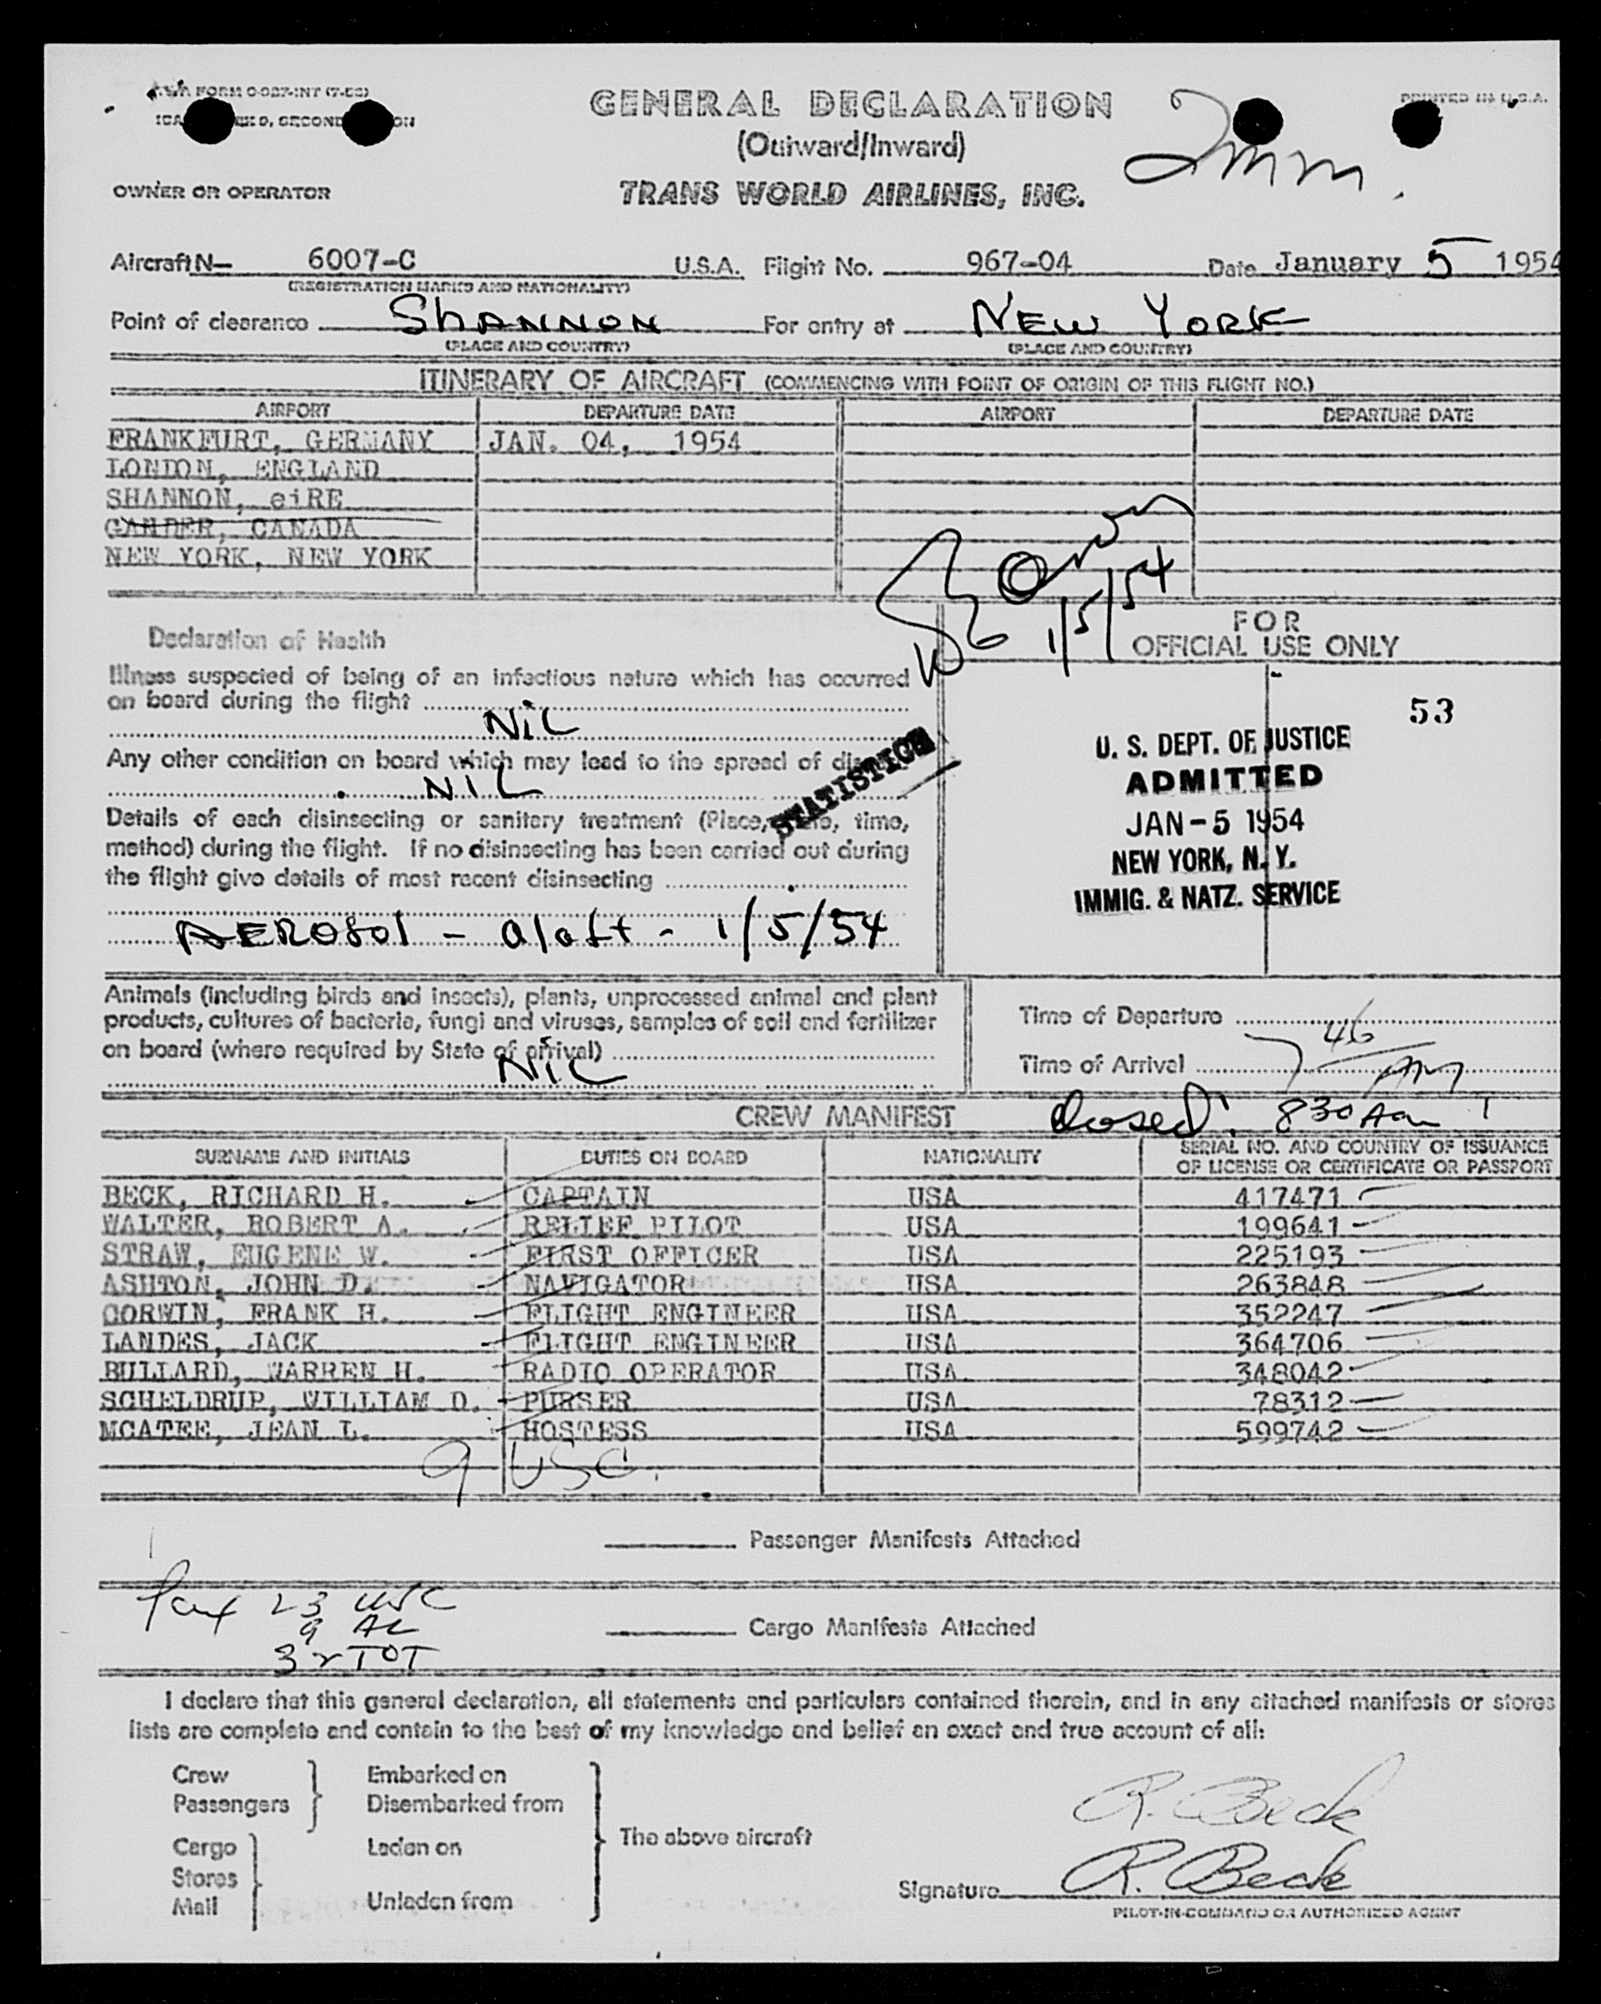 GENERAL DECLARATION
PRINTED IN U.S.A.
(Outward/Inward)
Imm.
OWNER OR OPERATOR
TRANS WORLD AIRLINES, INC.
Aircraft N— 6007-C U.S.A. Flight No. 967-04 Date January 5 1954
(REGISTRATION MARKS AND NATIONALITY)
Point of clearance ShANNON For entry at NEW YORK
(PLACE AND COUNTRY) (PLACE AND COUNTRY)
ITINERARY OF AIRCRAFT (COMMENCING WITH POINT OF ORIGIN OF THIS FLIGHT NO.)
AIRPORT DEPARTURE DATE AIRPORT DEPARTURE DATE
FRANKFURT, GERMANY JAN. 04, 1954
LONDON, ENGLAND
SHANNON, eiRE
GANDER, CANADA
NEW YORK, NEW YORK
1/5/54
FOR
OFFICIAL USE ONLY
Declaration of Health
Illness suspected of being of an infectious nature which has occurred
on board during the flight
NiL
Any other condition on board which may lead to the spread of
NiL
STATISTICS
Details of each disinsecting or sanitary treatment (Place, time,
method) during the flight. If no disinsecting has been carried out during
the flight give details of most recent disinsecting
AEROSOl - aloft - 1/5/54
53
U. S. DEPT. OF JUSTICE
ADMITTED
JAN - 5 1954
NEW YORK, N. Y.
IMMIG. & NATZ. SERVICE
Animals (including birds and insects), plants, unprocessed animal and plant
products, cultures of bacteria, fungi and viruses, samples of soil and fertilizer
on board (where required by State of arrival)
NiL
Time of Departure
Time of Arrival 7 46 AM
Closed: 830 Am
CREW MANIFEST
SURNAME AND INITIALS DUTIES ON BOARD NATIONALITY SERIAL NO. AND COUNTRY OF ISSUANCE
OF LICENSE OR CERTIFICATE OR PASSPORT
BECK, RICHARD H. CAPTAIN USA 417471
WALTER, ROBERT A. RELIEF PILOT USA 199641
STRAW, EUGENE W. FIRST OFFICER USA 225193
ASHTON, JOHN D. NAVIGATOR USA 263848
CORWIN, FRANK H. FLIGHT ENGINEER USA 352247
LANDES, JACK FLIGHT ENGINEER USA 364706
BULLARD, WARREN H. RADIO OPERATOR USA 348042
SCHELDRUP, WILLIAM D. PURSER USA 78312
MCATEE, JEAN L. HOSTESS USA 599742
9 USC.
Passenger Manifests Attached
23 USC
9 AL
32 TOT
Cargo Manifests Attached
I declare that this general declaration, all statements and particulars contained therein, and in any attached manifests or stores
lists are complete and contain to the best of my knowledge and belief an exact and true account of all:
Crew
Passengers
Embarked on
Disembarked from
Cargo
Stores
Mail
Laden on
Unladen from
The above aircraft
R. Beck
Signature R. Beck
PILOT-IN-COMMAND OR AUTHORIZED AGENT